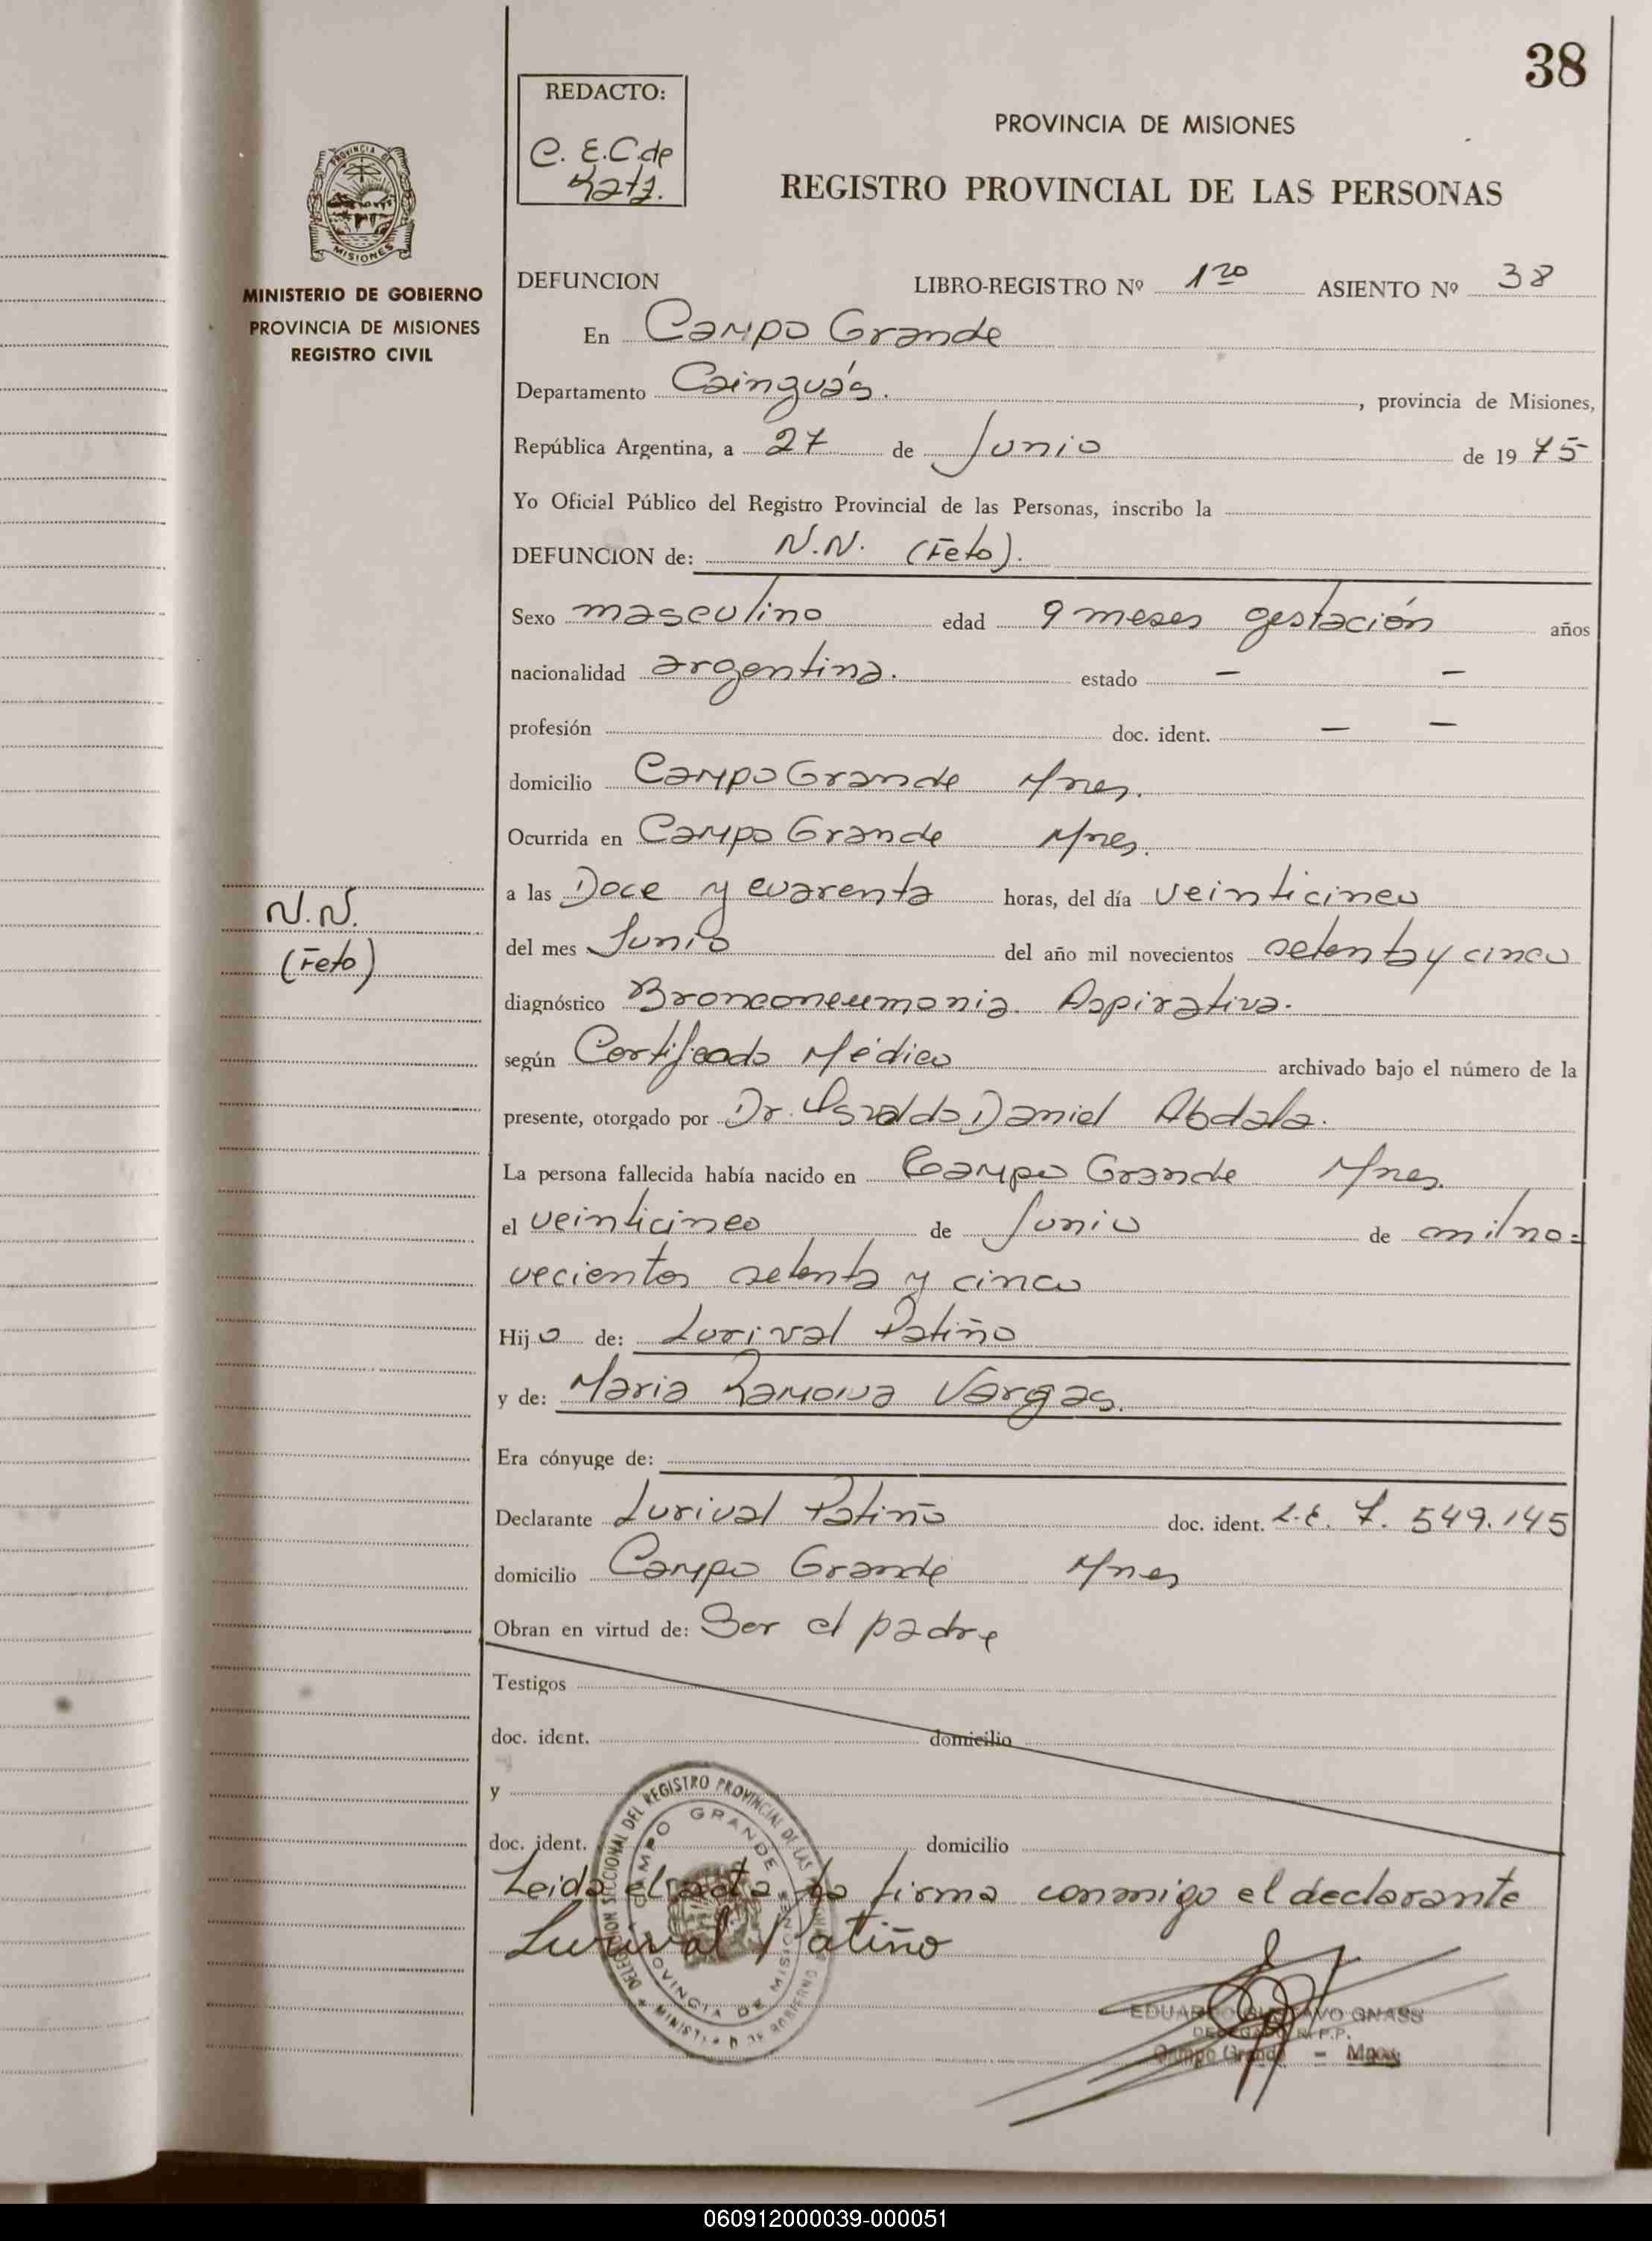 38
REDACTO:
C. E. C. de
Katz.
PROVINCIA DE MISIONES
REGISTRO PROVINCIAL DE LAS PERSONAS
PROVINCIA DE
MISIONES
MINISTERIO DE GOBIERNO
PROVINCIA DE MISIONES
REGISTRO CIVIL
DEFUNCION LIBRO-REGISTRO Nº 1ro ASIENTO Nº 38
En Campo Grande
Departamento Cainguás. , provincia de Misiones,
República Argentina, a 27 de Junio de 19 75
Yo Oficial Público del Registro Provincial de las Personas, inscribo la
DEFUNCION de: N.N. (Feto).
Sexo masculino edad 9 meses gestación años
nacionalidad argentina. estado – –
profesión doc. ident. – –
domicilio Campo Grande Mnes.
Ocurrida en Campo Grande Mnes.
a las Doce y cuarenta horas, del día veinticinco
N.N.
(Feto)
del mes Junio del año mil novecientos setenta y cinco
diagnóstico Bronconeumonia. Aspirativa.
según Certificado Médico archivado bajo el número de la
presente, otorgado por Dr. Osvaldo Daniel Abdala.
La persona fallecida había nacido en Campo Grande Mnes.
el veinticinco de Junio de mil no=
vecientos setenta y cinco
Hijo de: Lurival Patiño
y de: Maria Ramona Vargas.
Era cónyuge de:
Declarante Lurival Patiño doc. ident. L.E. 7. 549.145
domicilio Campo Grande Mnes
Obran en virtud de: Ser el padre
Testigos
doc. ident. domicilio
y
doc. ident. domicilio
Leida el acta la firma conmigo el declarante
Lurival Patiño
DELEGACION SECCIONAL DEL REGISTRO PROVINCIAL DE LAS
CAMPO GRANDE
PROVINCIA DE MISIONES
EDUARDO GUSTAVO GNASS
DELEGADO R.P.P.
Campo Grande - Mnes
060912000039-000051